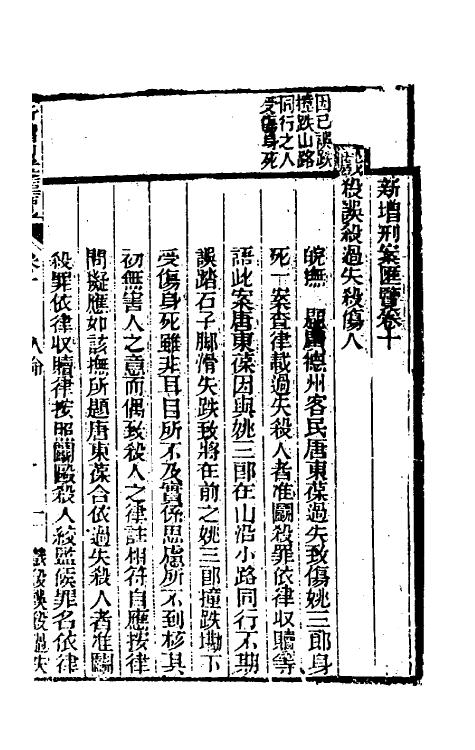 新增刑案匯覽卷十
戲殺誤殺過失殺傷人
因己誤跌
撞跌山路
同行之人
受傷身死
皖撫 題廣德州客民唐東葆過失致傷姚三郎身
死一案查律載過失殺人者准鬬殺罪依律收贖等
語此案唐東葆因與姚三郎在山沿小路同行不期
誤踏石子脚滑失跌致將在前之姚三郎撞跌磡下
受傷身死雖非耳目所不及實係思慮所不到核其
初無害人之意而偶致殺人之律註相符自應按律
問擬應如該撫所題唐東葆合依過失殺人者准鬬
殺罪依律收贖律按照鬬毆殺人絞監候罪名依律
人命
戲殺誤殺過失